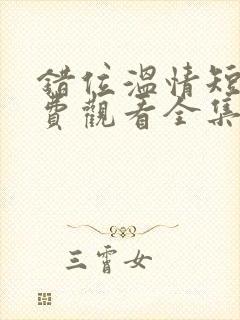 錯位溫情短
費觀看全集
三霄女